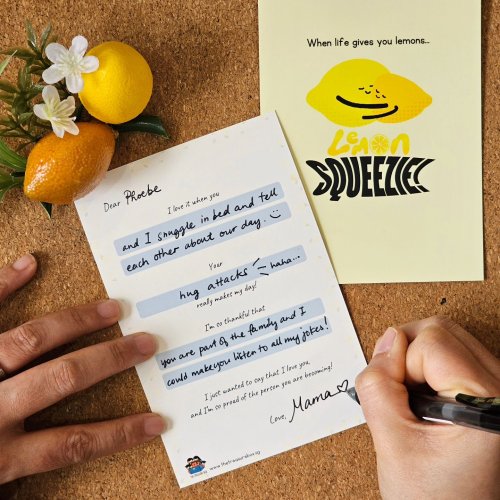 When life gives you lemons..
Lemon
SQUEEZIE!
Dear Phoebe
I love it when you
and I snuggle in bed and tell
each other about our day. :)
Your
hug attacks haha...
really makes my day!
I'm so thankful that
you are part of the family and I
could make you listen to all my jokes!
I just wanted to say that I love you,
and I'm so proud of the person you are becoming!
Love, Mama